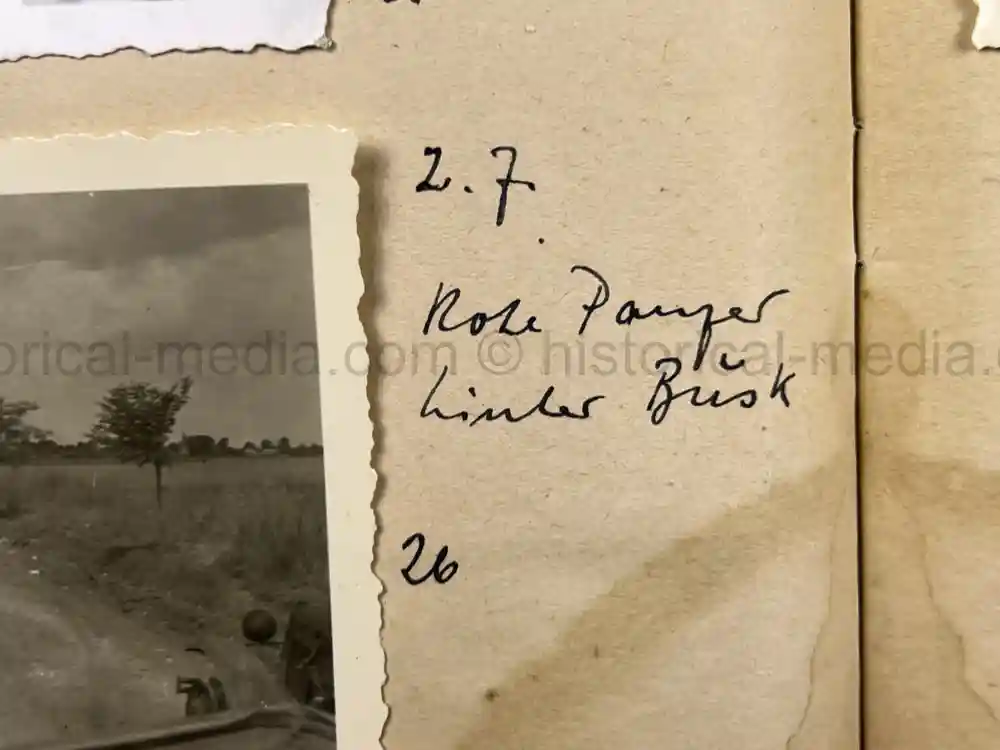 2.7.
Rote Panzer
orical-media.com © historical-media.c
hinter Busk
26